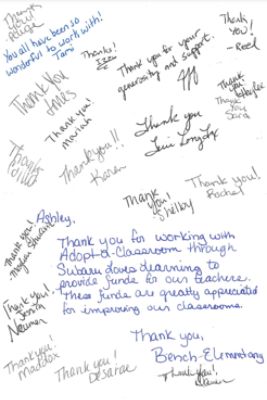 Thank
You!
- Reed
You all have been so
wonderful to work with!
Tami
Thanks!
Thank you for your
generosity and support.
Thank you
Thank you
Sara
Thank You
Thank you!
mariah
Thank you
Thank you!!
Karen
Thanks
Thank
You!
Shelby
Thank you!
Rachel
Thank you!
Ashley,
Thank you for working with
Adopt-a-Classroom through
Subaru Loves Learning to
provide funds for our teachers.
These funds are greatly appreciated
for improving our classrooms.
Thank you!
Neuman
Thank you,
Bench-Elementary
Thank you!
Maddox
Thank you!
Desarae
Thank you!